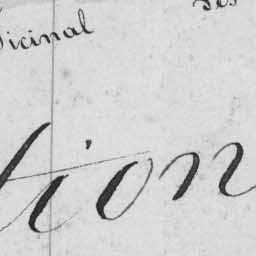 Vicinal des
tion